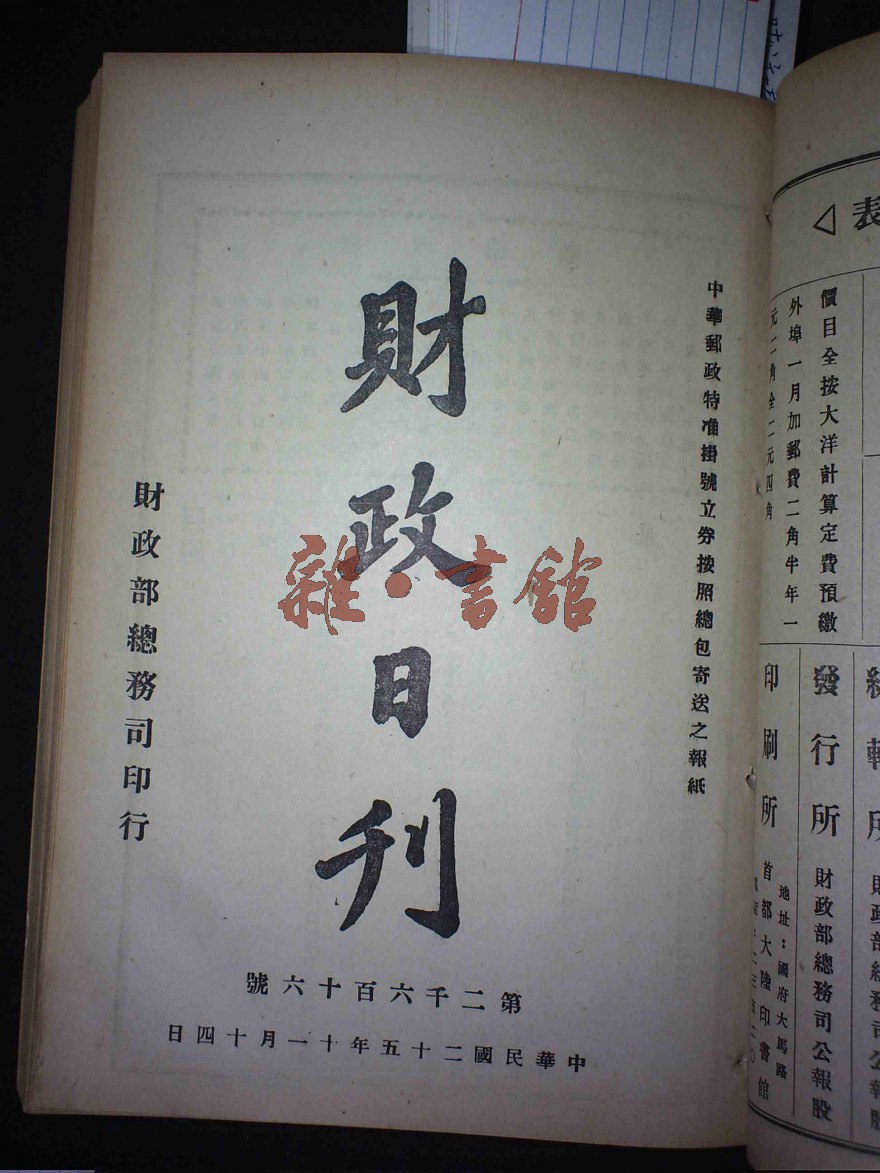 中華郵政特准掛號立劵按照總包寄送之報紙
財政日刊
第二千六百十六號
中華民國二十五年十一月十四日
財政部總務司印行
雜·書館
表
價目全按大洋計算定費預繳
外埠一月加郵費二角半年一
元二角全二元四角
財政部總務司公報股
發行所
財政部總務司公報股
印刷所
首都大陸印書館
地址：國府大馬路